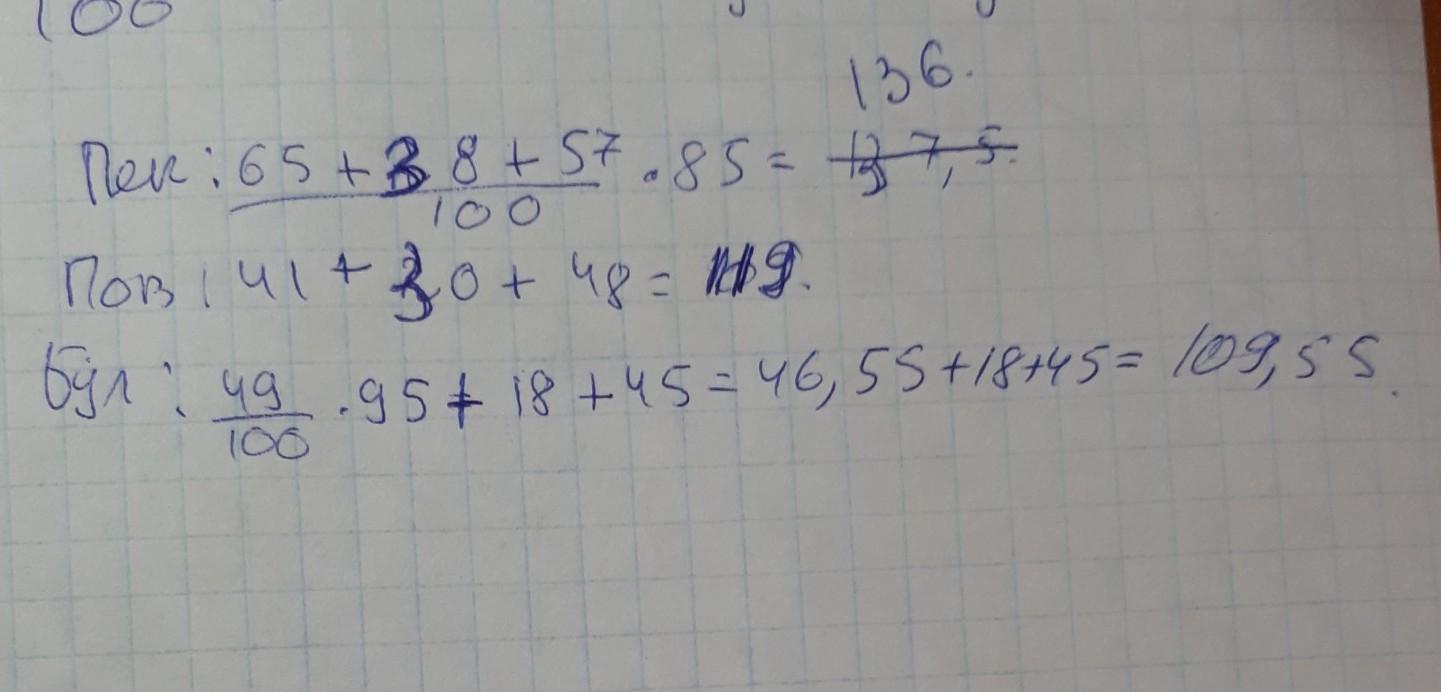 100
136.
Пек: 65 + 38 + 57 / 100 · 85 = 137,5.
Пов: 41 + 30 + 48 = 119.
бул: 49 / 100 · 95 + 18 + 45 = 46,55 + 18 + 45 = 109,55.